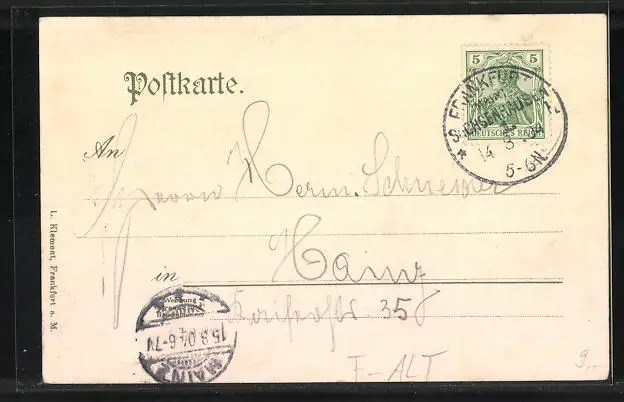 Postkarte.
5 5
DEUTSCHES REICH
FRANKFURT
SACHSENHAUSEN
14 8 04
5-6N.
An
Herrn Herm. Schneider
in Mainz
Wohnung
Kaiserstr. 35
MAINZ
15.8.04.6-7V
L. Klement, Frankfurt a. M.
F-ALT
9,-